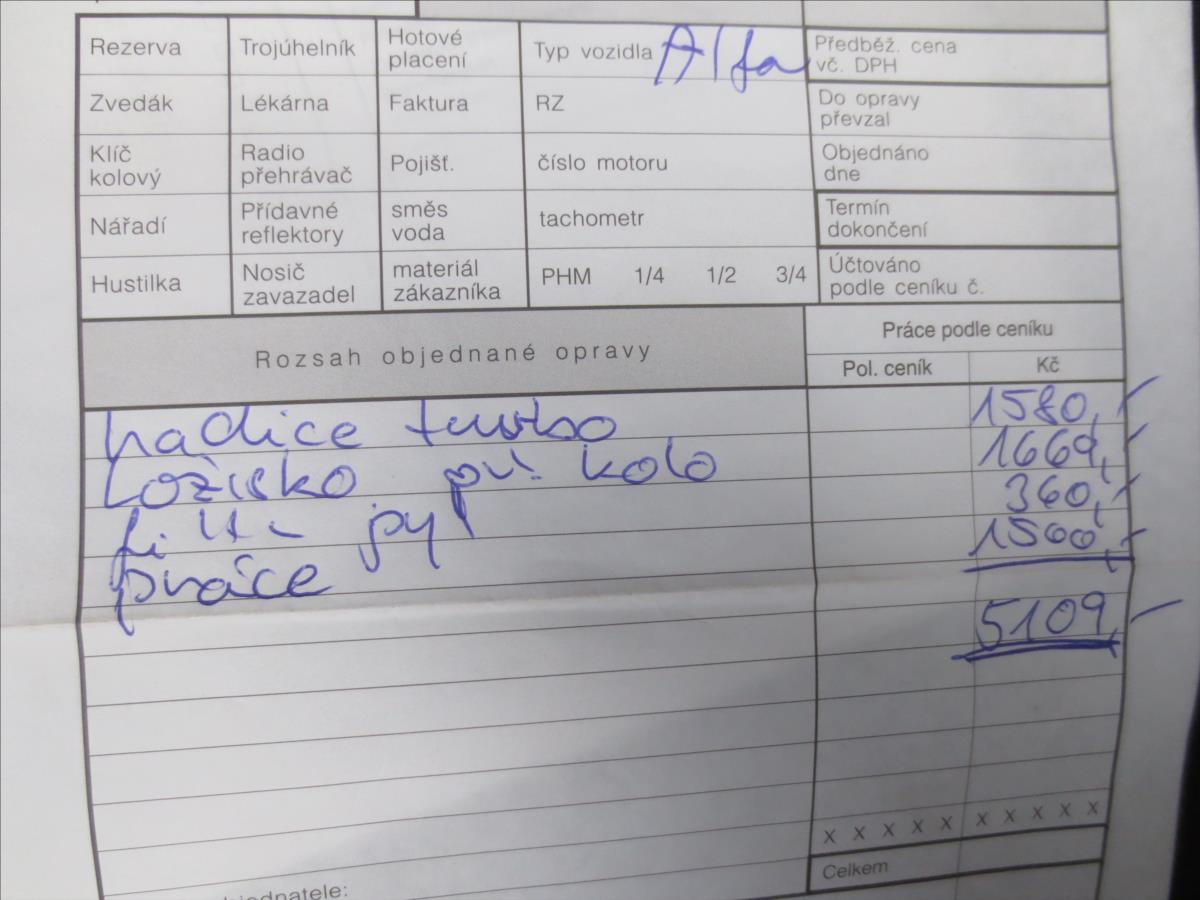 Rezerva Trojúhelník Hotové placení Typ vozidla Alfa Předběž. cena vč. DPH
Zvedák Lékárna Faktura RZ Do opravy převzal
Klíč kolový Radio přehrávač Pojišť. číslo motoru Objednáno dne
Nářadí Přídavné reflektory směs voda tachometr Termín dokončení
Hustilka Nosič zavazadel materiál zákazníka PHM 1/4 1/2 3/4 Účtováno podle ceníku č.
Rozsah objednané opravy Práce podle ceníku
Pol. ceník Kč
hadice turbo 1580,-
Ložisko př. kolo 1669,-
filtr pyl 360,-
práce 1500,-
5109,-
X X X X X X X X X X
Celkem
jednatele: